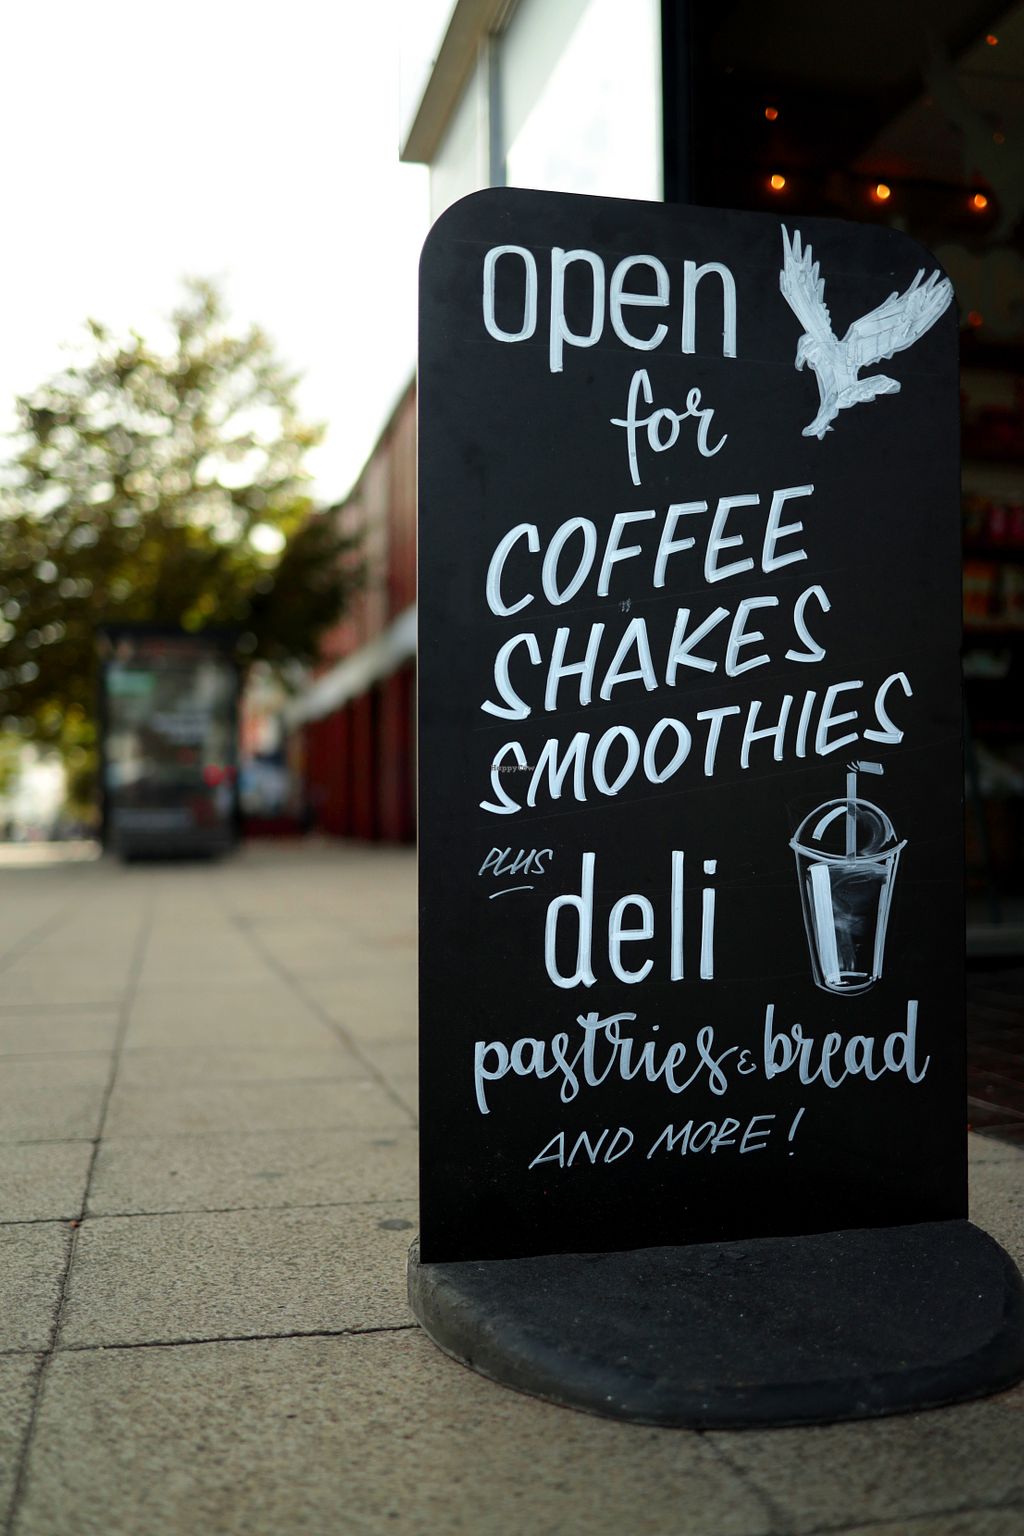 open
for
COFFEE
SHAKES
SMOOTHIES
HappyCow
PLUS
deli
pastries & bread
AND MORE!